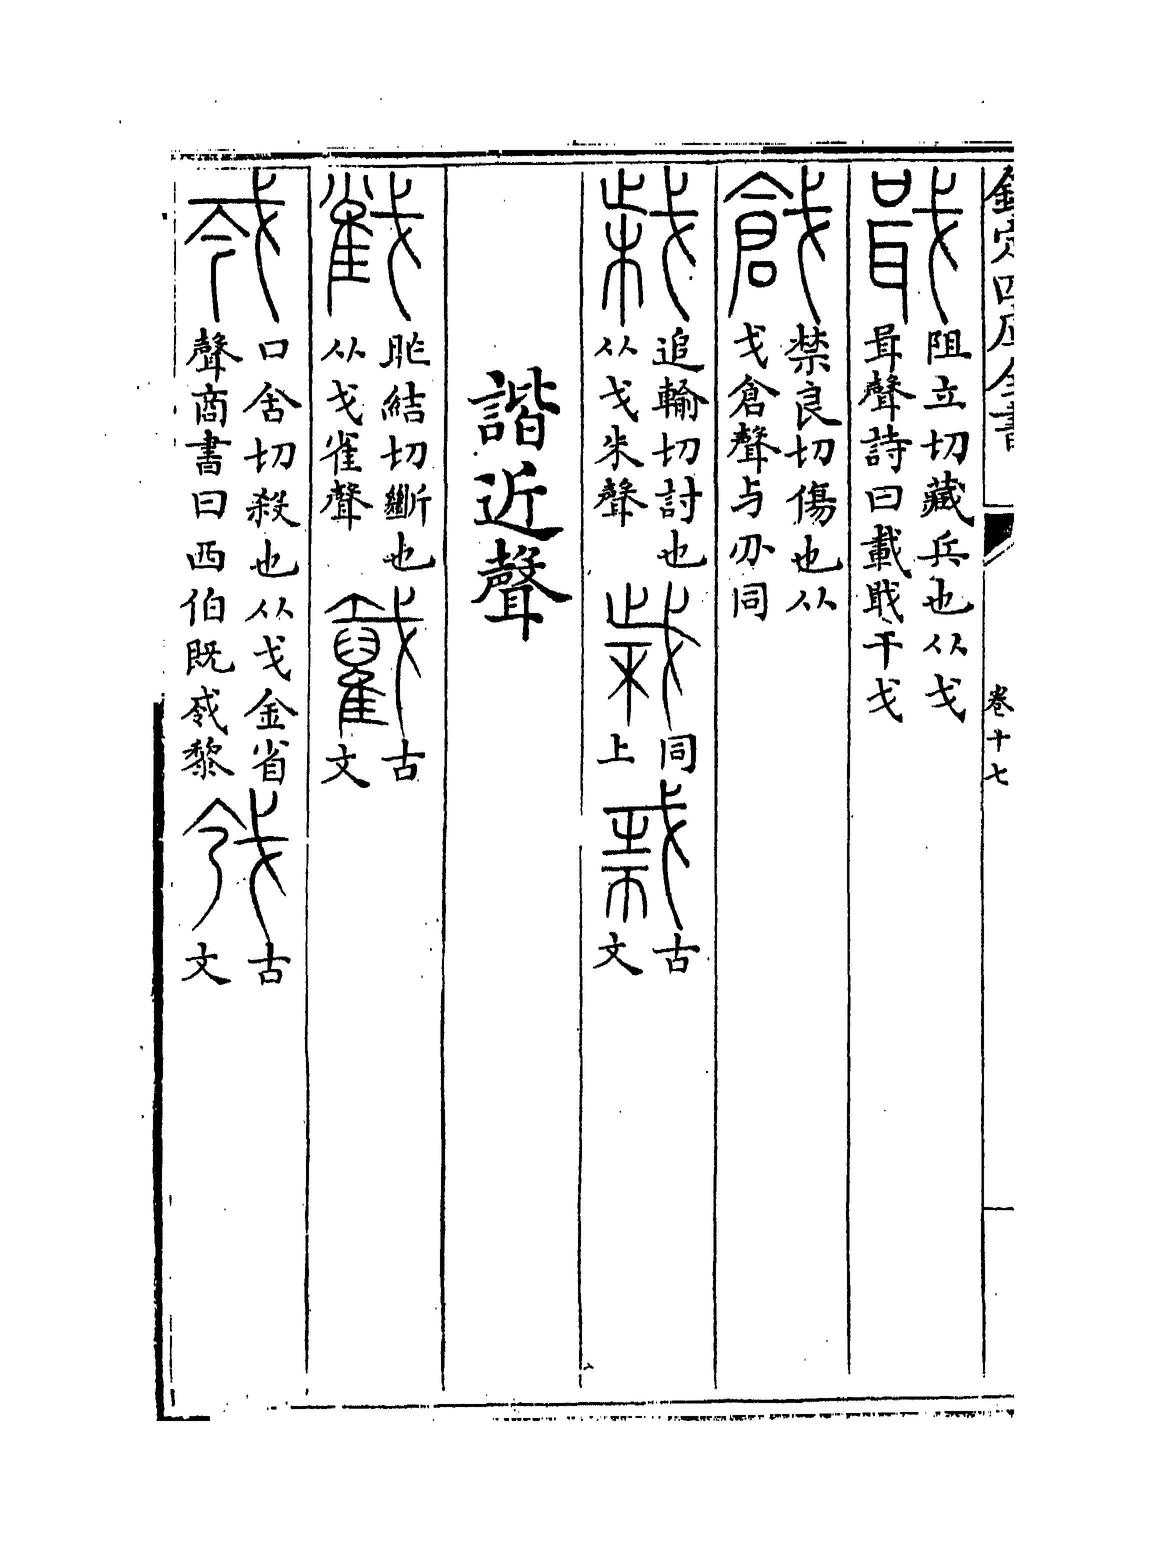 欽定四庫全書
卷十七
戢 阻立切藏兵也从戈
咠聲詩曰載戢干戈
戧 楚良切傷也从
戈倉聲与刅同
追輸切討也
从戈朱聲
同上
古文
諧近聲
𢧵 昨結切斷也
从戈雀聲
古文
口含切殺也从戈金省
聲商書曰西伯既𢦟黎
古文